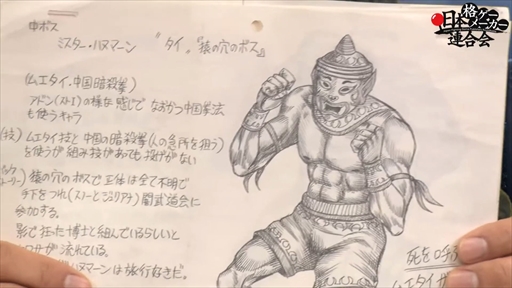 日本格ゲーメーカー連合会
中ボス
ミスター・ハヌマーン 〝タイ〟『猿の穴のボス』
(ムエタイ・中国暗殺拳)
アドン(ストⅠ)の様な感じで なおかつ中国拳法
も使うキャラ
技) ムエタイ技と中国の暗殺拳(人の急所を狙う)
を使うが組み技があっても投げがない
猿の穴のボスで正体は全て不明で
手下をつれ(ストーとジュリアナ)闇武道会に
参加する。
影で狂った博士と組んでいるらしいと
が流れている。
ハヌマーンは旅行好きだ。
死を呼
ムエタイ